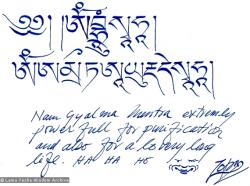 ༄༅། །ཨོཾ་བྷྲཱུཾ་སྭཱཧཱ།
ཨོཾ་ཨ་མྲྀ་ཏ་ཨཱ་ཡུརྡ་དེ་སྭཱཧཱ།
Nam Gyalma Mantra extremely
power full for purification
and also for a lo very long
life. HA HA HO
© Lama Yeshe Wisdom Archive